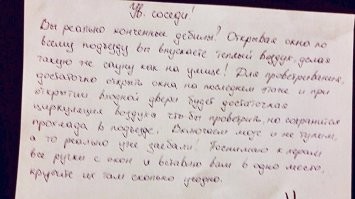 Ув. соседи!
Вы реально конченные дебилы? Открывая окна по
всему подъезду вы впускаете теплый воздух, делая
такую же сауну как на улице! Для проветривания
достаточно открыть окна на последнем этаже и при
открытии входной двери будет достаточная
циркуляция воздуха что бы проветрить но сохранится
прохлада в подъезде. Включаем мозг а не тупим,
а то реально уже заебали! Поснимаю к херам
все ручки с окон и вставлю вам в одно место,
крутите их там сколько угодно.